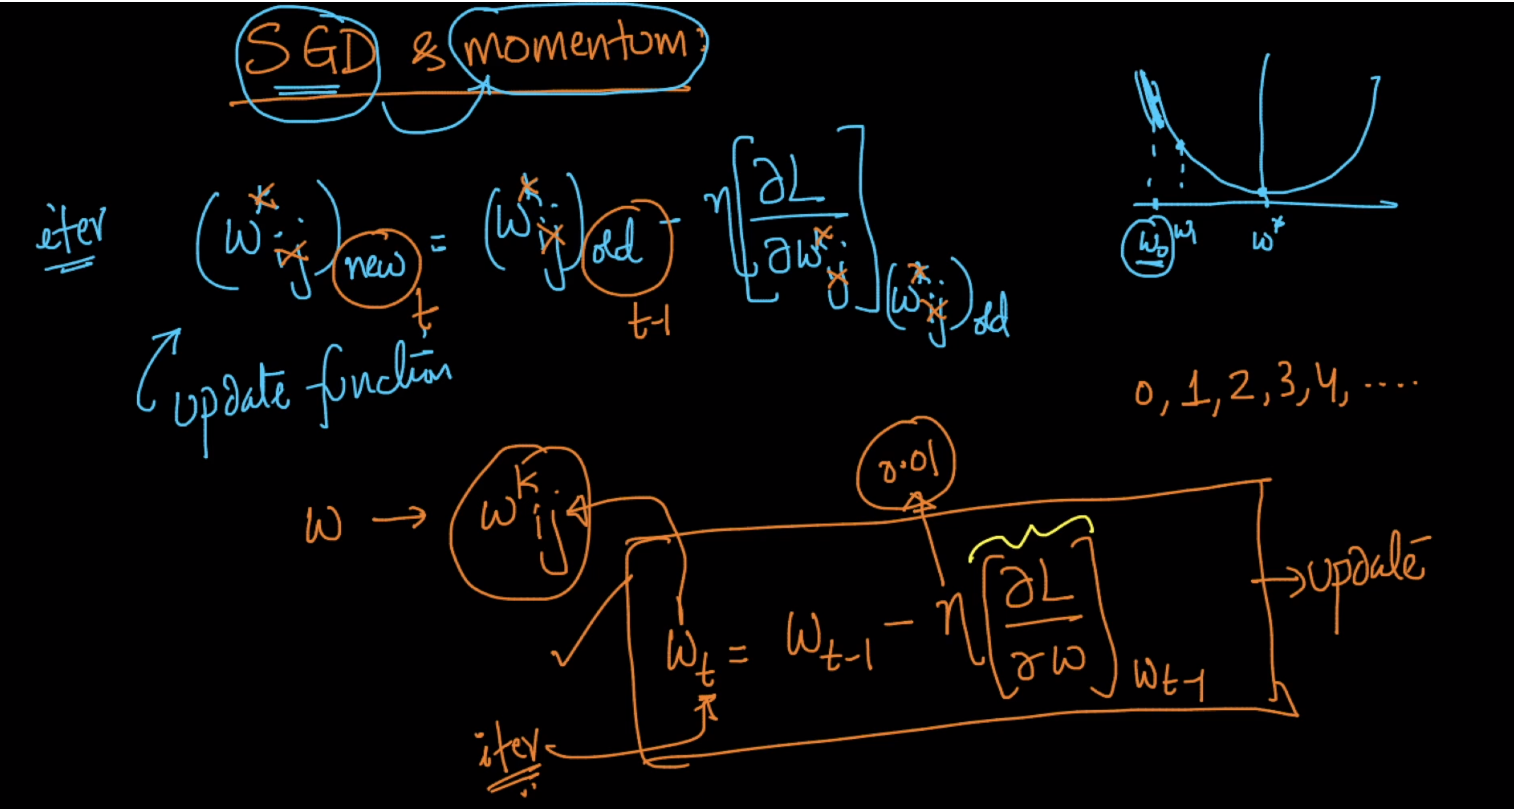 SGD & momentum:
iter (w^k_ij)new = (w^k_ij)old - η[∂L/∂w^k_ij](w^k_ij)old
t t-1
w₀ w₁ w*
update function
0, 1, 2, 3, 4, ....
0.01
w → w^k_ij
w_t = w_t-1 - η[∂L/∂w]w_t-1 → update
iter